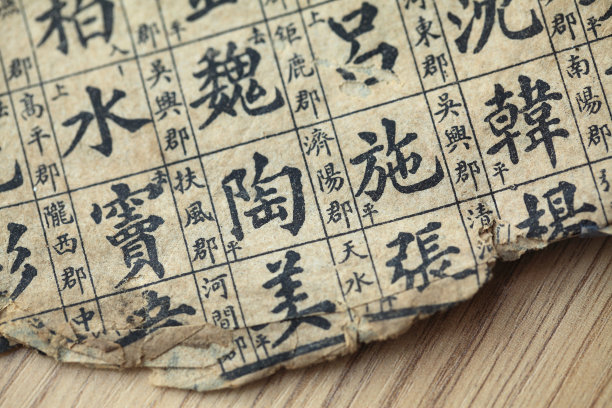 郡 南陽郡
沈 韓 平 楊
河東郡 吳興郡 清河
上 呂 施 平 張
鉅鹿郡 濟陽郡 天水
去 魏 陶 平 姜 平
郡 吳興郡 扶風郡 河間郡
柏 入 上 水 去 竇
郡 高平郡 隴西郡 中